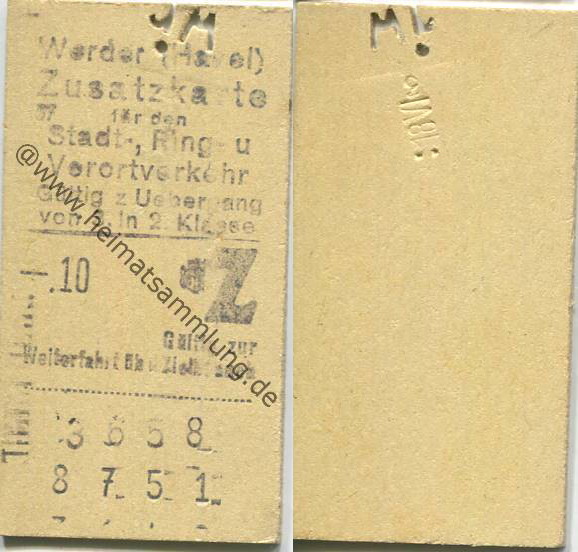 Werder (Havel)
Zusatzkarte
37 für den
Stadt-, Ring- u
Vorortverkehr
Gültig z Uebergang
von 3. in 2. Klasse
.10 Z
Gültig zur
Weiterfahrt
3 6 5 8
8 7 5 1
@www.heimatsammlung.de